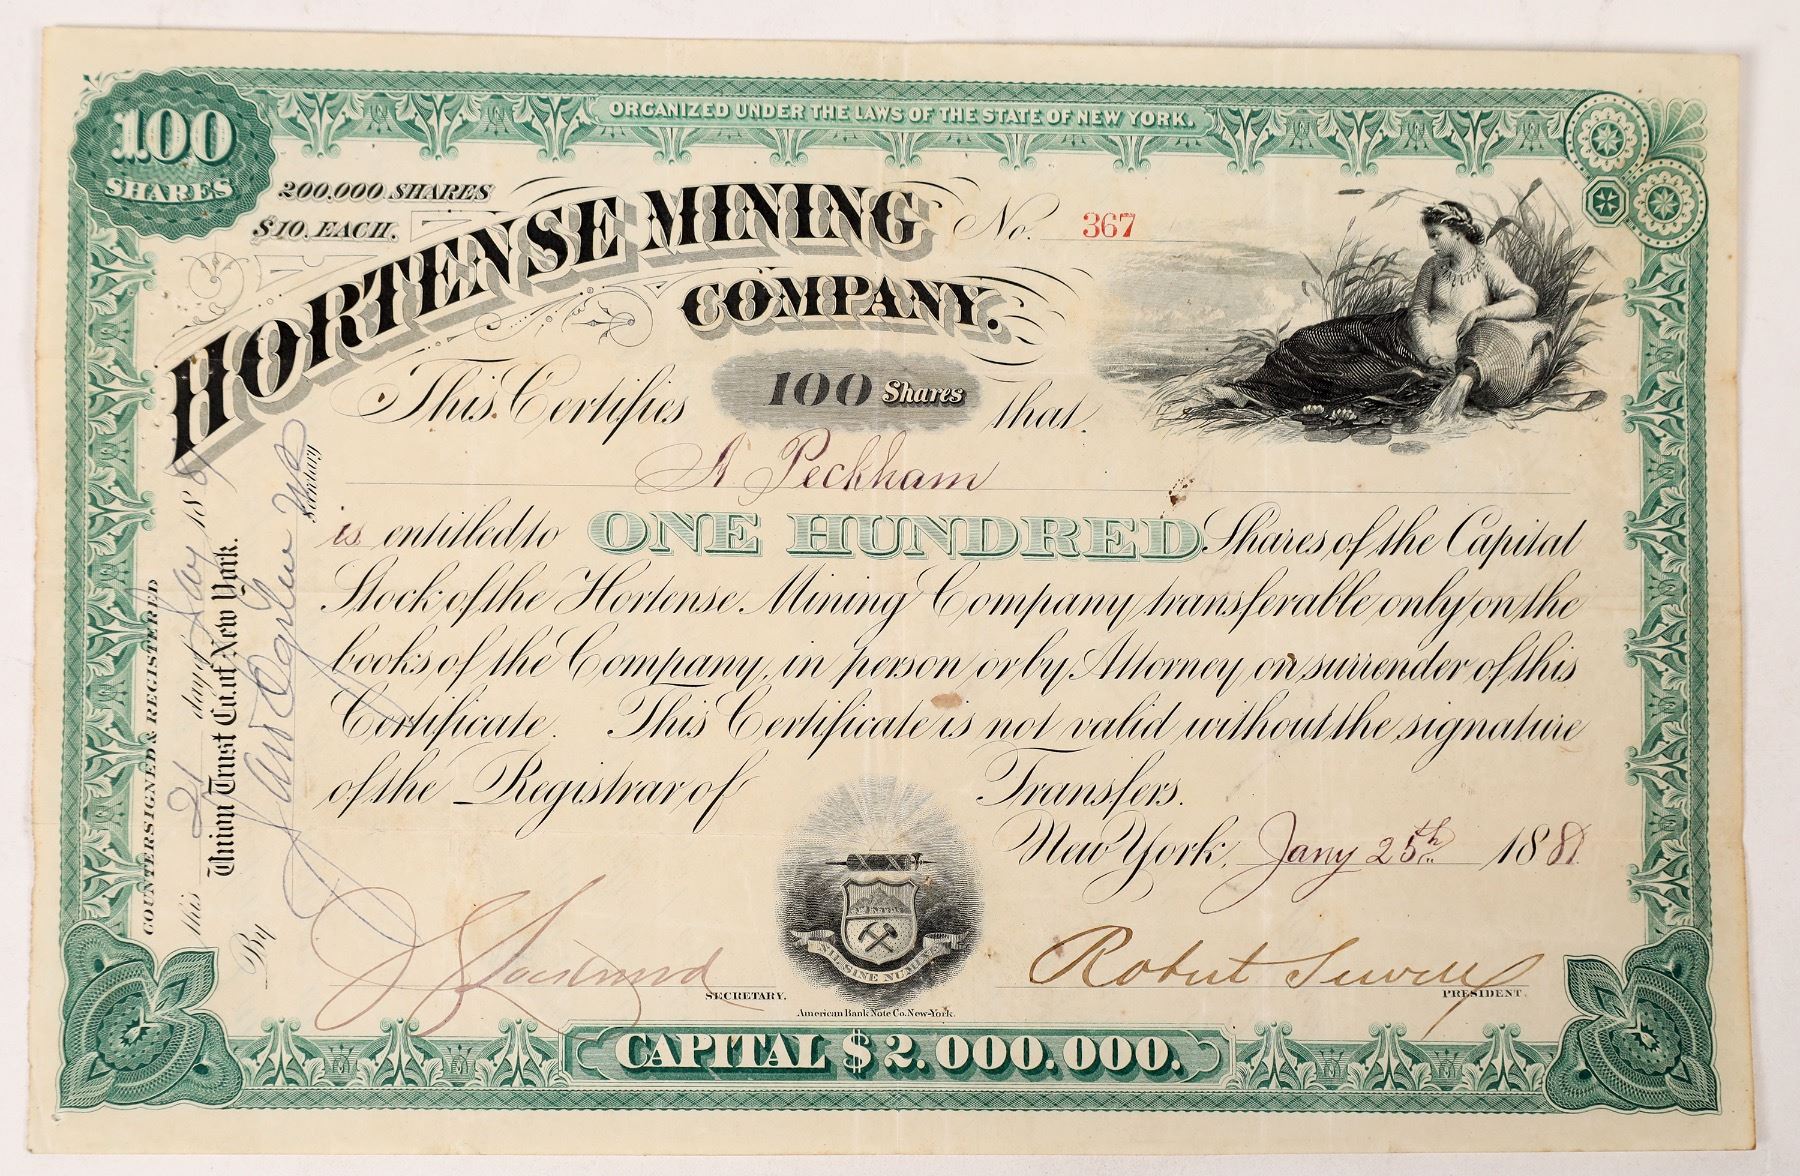 ORGANIZED UNDER THE LAWS OF THE STATE OF NEW YORK.
100
SHARES
200,000 SHARES
$10. EACH.
HORTENSE MINING
COMPANY.
No. 367
This Certifies 100 Shares that
A Peckham
is entitled to ONE HUNDRED Shares of the Capital
Stock of the Hortense Mining Company transferable only on the
books of the Company, in person or by Attorney on surrender of this
Certificate. This Certificate is not valid without the signature
of the Registrar of Transfers.
New York, Jany 25th 1881
SECRETARY.
Robert Sewell
PRESIDENT.
NIL SINE NUMINE
American Bank Note Co. New-York.
CAPITAL $2.000.000.
COUNTERSIGNED & REGISTERED
this 21 day of 188
Union Trust Co. of New York.
By
Secretary